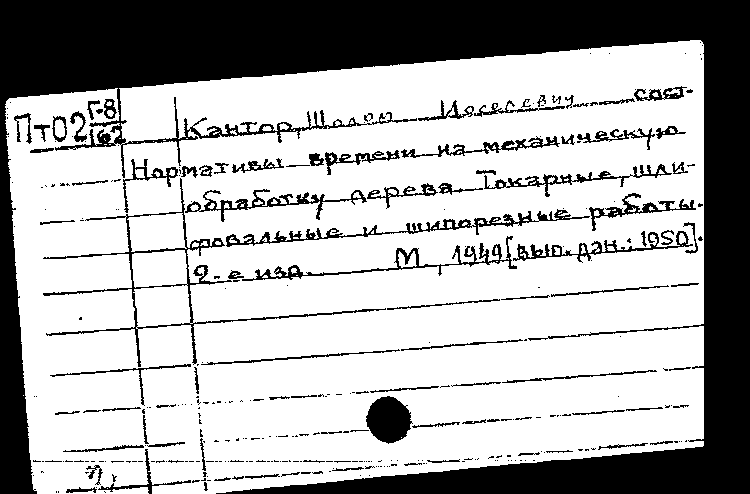 Пт02 Г-8/162
Кантор, Шолом Иоселевич сост.
Нормативы времени на механическую
обработку дерева. Токарные, шли-
фовальные и шипорезные работы.
2-е изд. М, 1949 [вып. дан.: 1950].